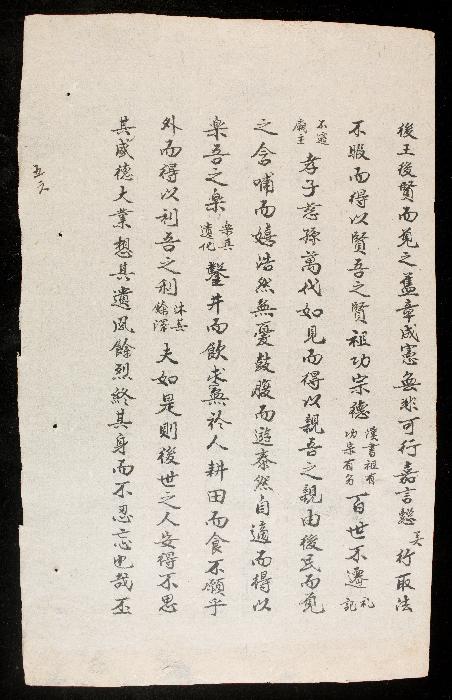 後王後賢而覓之舊章成憲無非可行嘉言懿美行取法
不暇而得以賢吾之賢祖功宗德漢書祖有功宗有名百世不遷礼記
不迁廟主孝子慈孫萬代如見而得以親吾之親由後民而覓
之含哺而嬉浩然無憂鼓腹而遊泰然自適而得以
樂吾之樂樂其遺化鑿井而飲求無於人耕田而食不願乎
外而得以利吾之利沐其餘澤夫如是則後世之人安得不思
其盛德大業想其遺風餘烈終其身而不忍忘也哉丕
五久